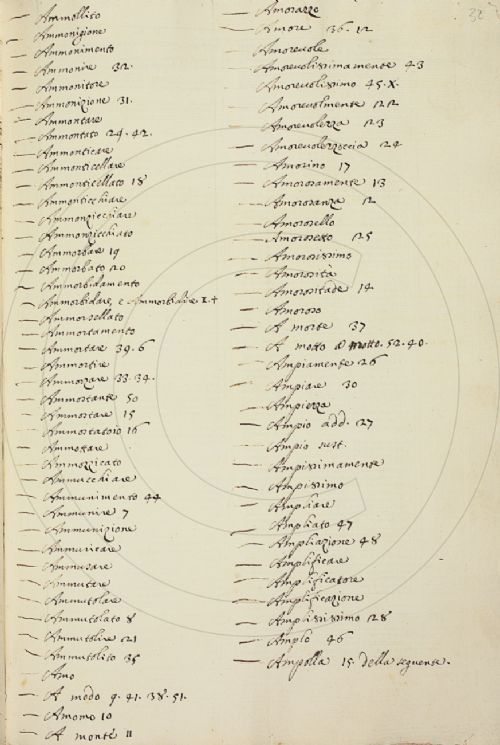 — Ammollito
— Ammonigione
— Ammonimento
— Ammonire 32.
— Ammonitore
— Ammonizione 31.
— Ammontare
— Ammontato 29. 42.
— Ammonticare
— Ammonticellare
— Ammonticellato 18
— Ammonticchiare
— Ammonzicchiare
— Ammonzicchiato
— Ammorbare 19
— Ammorbato 20
— Ammorbidamento
— Ammorbidare, e Ammorbidire
— Ammorsellato
— Ammortamento
— Ammortare 39. 6
— Ammortire
— Ammorzare 33. 34.
— Ammostante 50
— Ammostare 15
— Ammostatoio 16
— Ammottare
— Ammozzicato
— Ammucchiare
— Ammunimento 44
— Ammunire 7
— Ammunizione
— Ammuricare
— Ammusare
— Ammutare
— Ammutolare
— Ammutolato 8
— Ammutolire 21
— Ammutolito 35
— Amo
— A modo 9. 41. 38. 51.
— Amomo 10
— A monte 11
— Amorazzo
— Amore 36. 12
— Amorevole
— Amorevolissimamente 43
— Amorevolissimo 45. X.
— Amorevolmente 22
— Amorevolezza 23
— Amorevolezzoccia 24
— Amorino 17
— Amorosamente 13
— Amorosanza 12
— Amorosello
— Amorosetto 25
— Amorosissimo
— Amorosità
— Amorositade 14
— Amoroso
— A morte 37
— A motto a motto. 52. 40.
— Ampiamente 26
— Ampiare 30
— Ampiezza
— Ampio add. 27
— Ampio sust.
— Ampissimamente
— Ampissimo
— Ampliare
— Ampliato 47
— Ampliazione 48
— Amplificare
— Amplificatore
— Amplificazione
— Amplissimo 28
— Amplo 46
— Ampolla 15. della seguente.